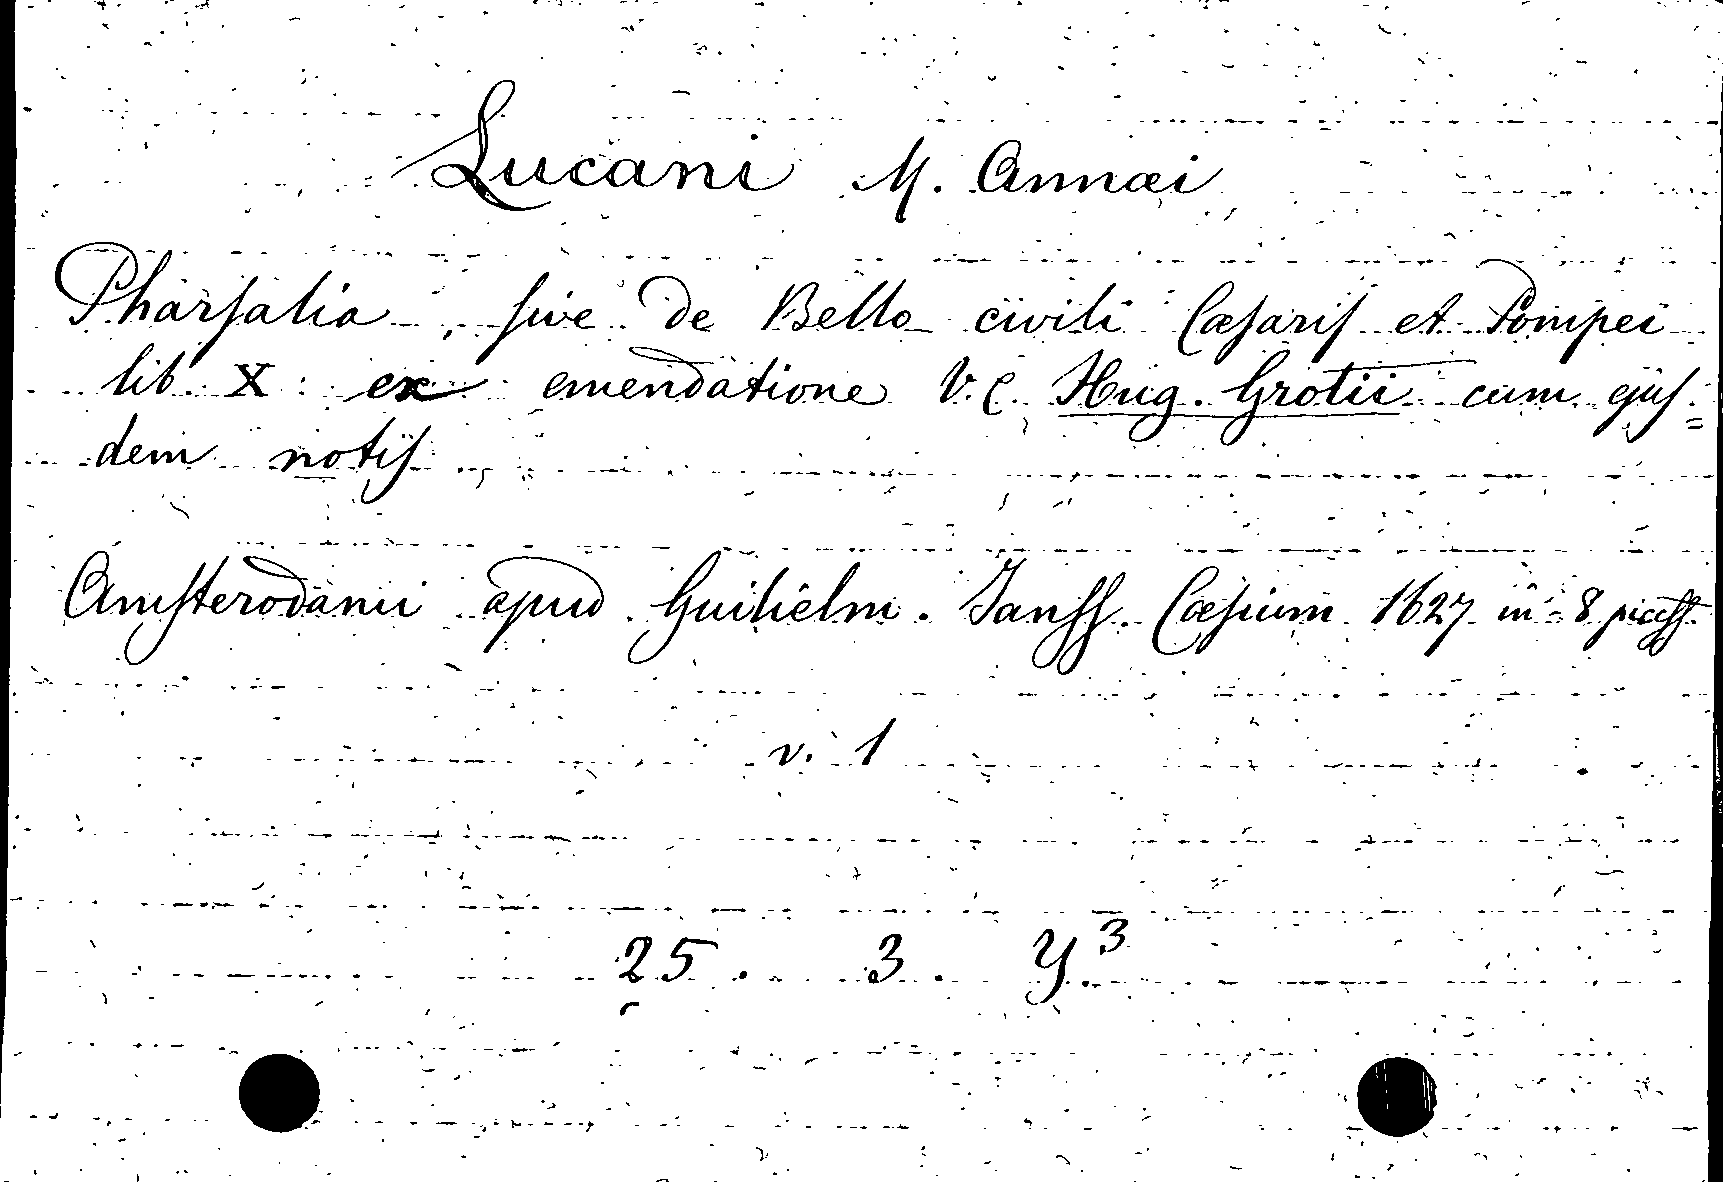 Lucani M. Annæi
Pharsalia, sive de Bello civili Cæsaris et Pompei
lib. X ex emendatione V.C. Hug. Grotii cum ejus=
dem notis
Amsterodami apud Guilielm. Janss. Cæsium 1627 in-8 piccss.
v. 1
25. 3. Y.³